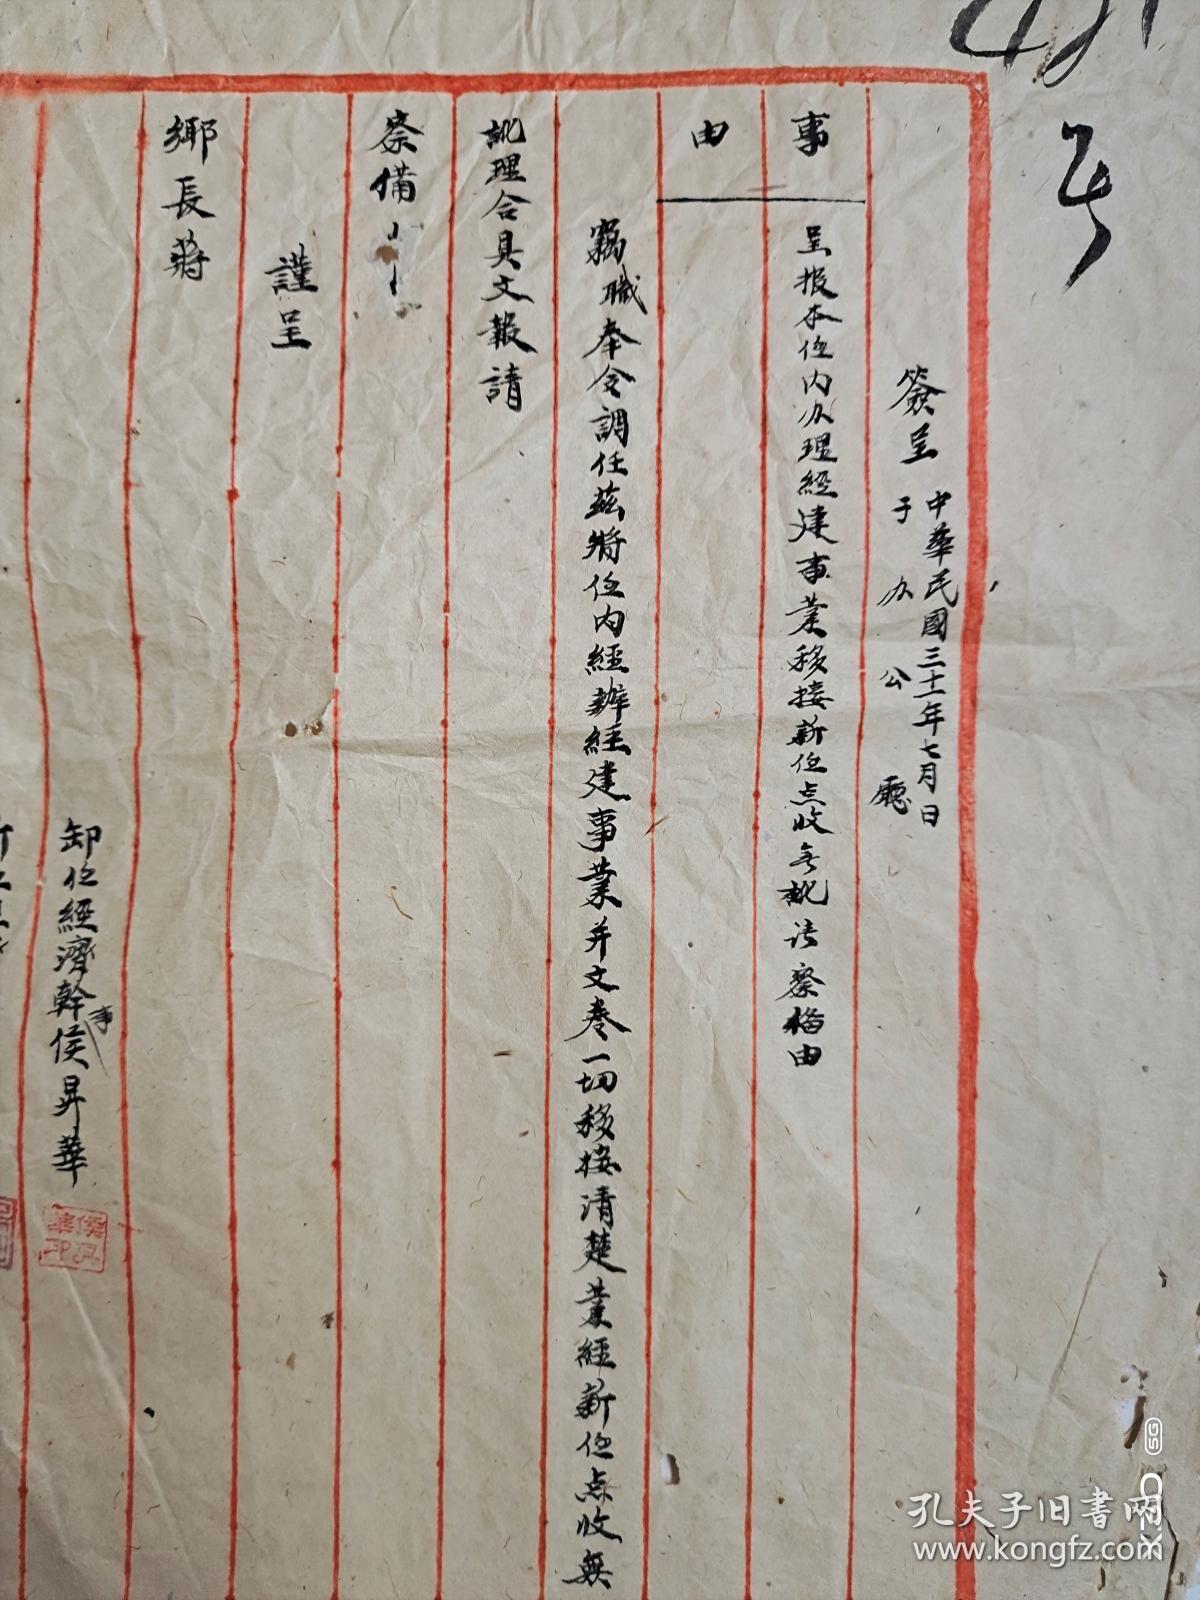 簽呈 中華民國三十一年七月 日
于 办 公 廳
事由
呈报本任内办理經建事業移接新任点收無訛请察偹由
竊職奉令調任茲將任内經辦經建事業并文卷一切移接清楚業經新任点收無
訛理合具文報請
察備
謹呈
鄉長蔣
卸任經濟幹事侯昇華
孔夫子旧书网
www.kongfz.com